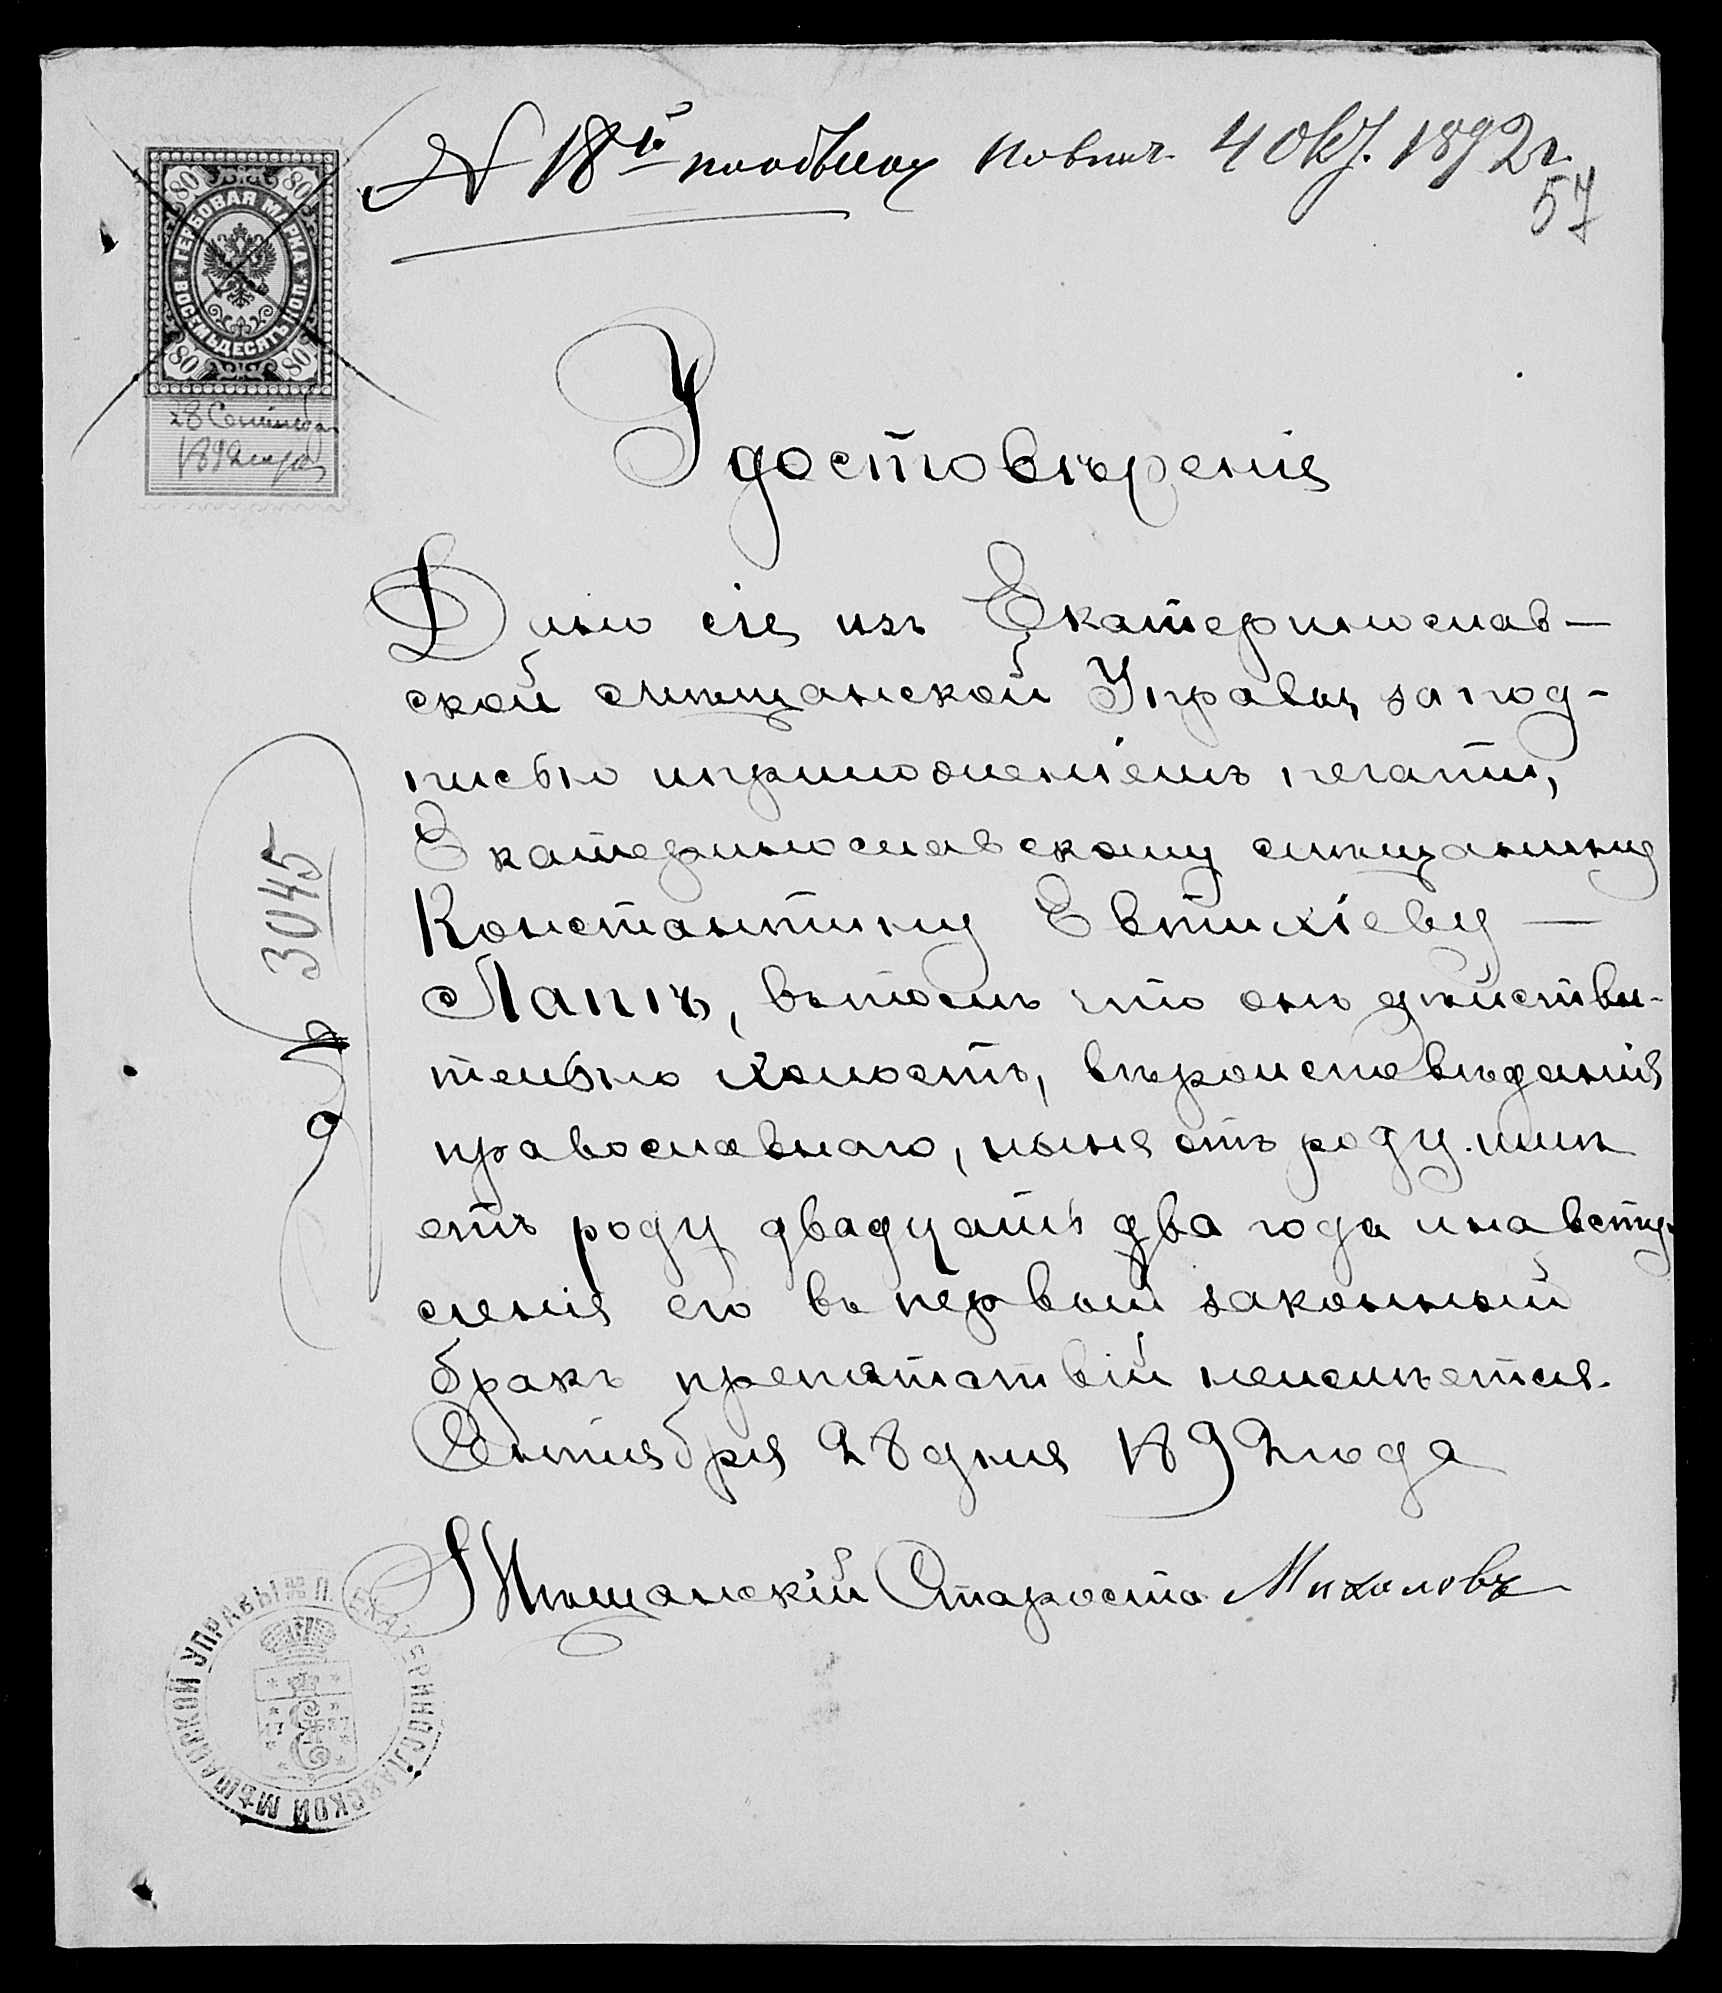 № 18й пообыск повѣнч. 4 окт. 1892 г.
57
80 80
ГЕРБОВАЯ МАРКА
ВОСЕМЬДЕСЯТЪ КОП.
80 80
28 Сентября
1892 года
Удостовѣренія
Дано сіе изъ Екатеринослав-
ской мѣщанской Управы, за под-
писью и приложеніемъ печати,
Екатеринославскому мѣщанину
Константину Евтихіеву —
Лаппъ, въ томъ что онъ дѣйстви-
тельно холостъ, вѣроисповѣданія
православнаго, ныня отъ роду имѣ
етъ роду двадцать два года и на всту-
пленія его въ первый законный
бракъ препятствій неимѣется.
Сентября 28 дня 1892 года
Мѣщанскій Староста Михалевъ
№ 3045
П. ЕКАТЕРИНОСЛАВСКОЙ МѢЩАНСКОЙ УПРАВЫ